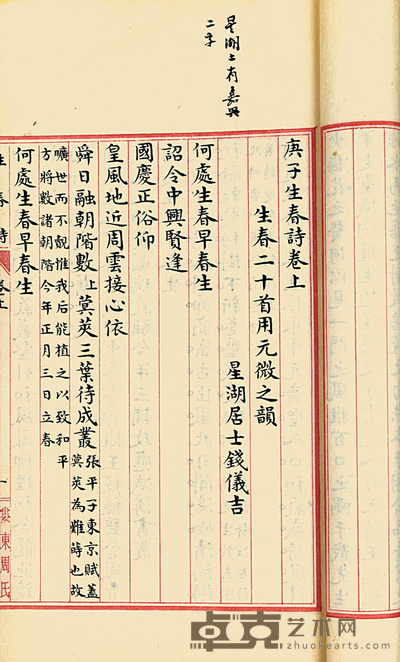 星湖上有嘉興
二字
庚子生春詩卷上
生春二十首用元微之韻
星湖居士錢儀吉
何處生春早春生
詔令中興賢逢
國慶正俗仰
皇風地近周雲接心依
舜日融朝階數上蓂莢三葉待成叢張平子東京賦蓋蓂莢為難蒔也故
曠世而不覿惟我后能植之以致和平
方將數諸朝階今年正月三日立春
何處生春早春生
生春詩
卷上
一
婁東周氏
卓克艺术网
www.zhuokearts.com